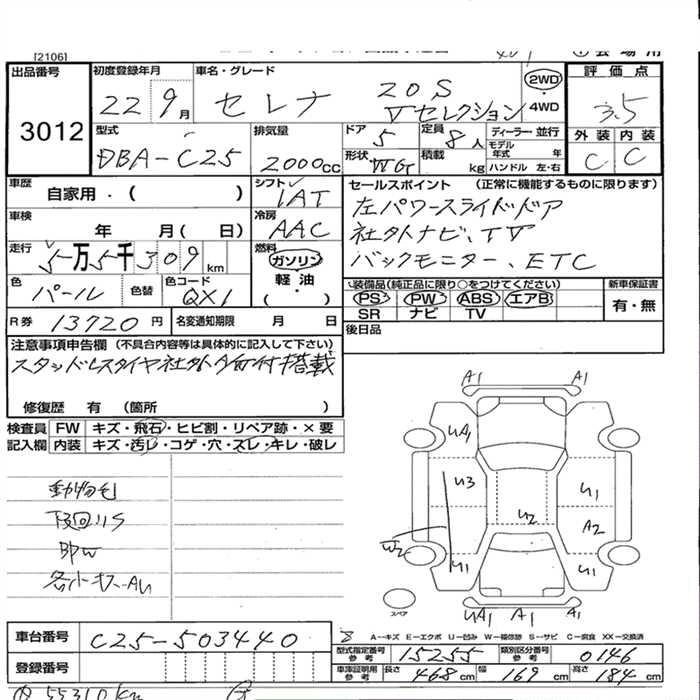 [2106]
出品番号 初度登録年月 車名・グレード 2WD・4WD 評価点
3012 22 9月 セレナ 20S Vセレクション 3.5
型式 排気量 ドア 定員 ディーラー・並行 外装 内装
DBA-C25 2000cc 5 8人 モデル年式 年 C C
形状 WG 積載 kg ハンドル 左・右
車歴 自家用・( ) シフト IAT セールスポイント (正常に機能するものに限ります)
車検 年 月( 日) 冷房 AAC 左パワースライドドア
社外ナビ、TV
走行 5万5千309km 燃料 ガソリン 軽油 ( ・ ) バックモニター、ETC
色 パール 色替 色コード QX1 装備品(純正品に限り○をつけてください) 新車保証書
PS PW ABS エアB 有・無
SR ナビ TV
R券 13720円 名変通知期限 月 日 後日品
注意事項申告欄 (不具合内容等は具体的に記入して下さい)
スタッドレスタイヤ社外 付 搭載
修復歴 有 (箇所 )
検査員 FW キズ・飛石・ヒビ割・リペア跡・×要
記入欄 内装 キズ・汚レ・コゲ・穴・スレ・キレ・破レ
A1 A1
UA1
U3 U1
U2
A2
W2
U1 U1
UA1 A1 A1
スペア
動物毛
下回りS
各小キズ・AU
A-キズ E-エクボ U-凹み W-補修跡 S-サビ C-腐食 XX-交換済
車台番号 C25-503440
型式指定番号 参考 15255 類別区分番号 参考 0146
登録番号
車庫証明用 参考 長さ 468cm 幅 169cm 高さ 184cm
内 55310km